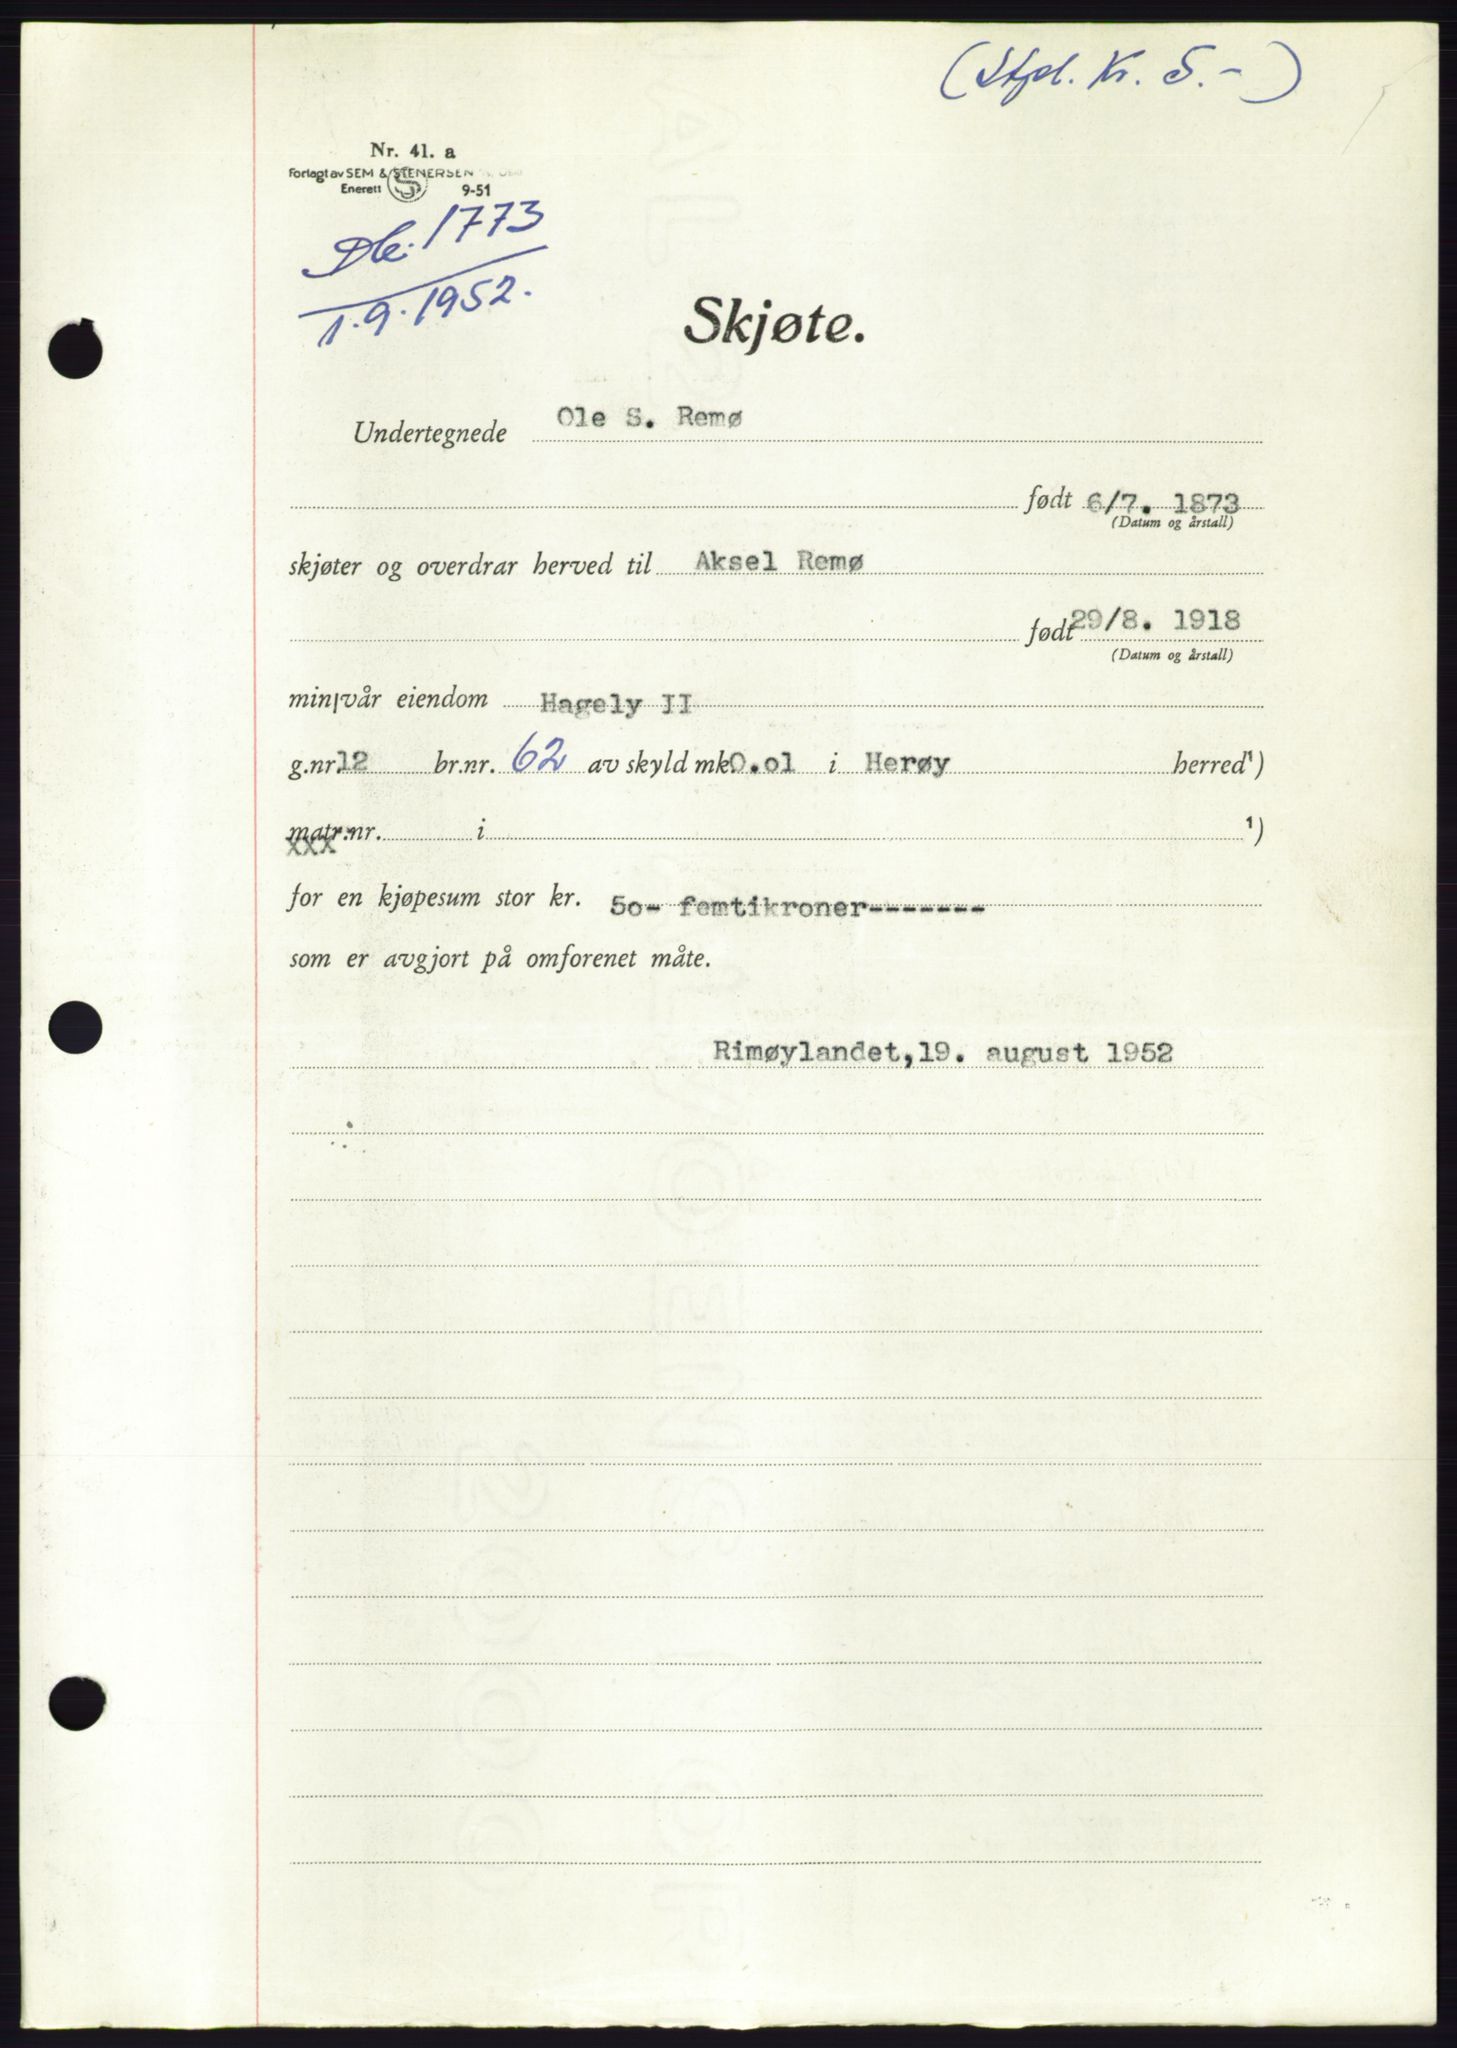 (Stpl. Kr. 5.-)
Nr. 41. a
Forlagt av SEM & STENERSEN
Enerett 9-51
Db. 1773
1.9.1952.
Skjøte.
Undertegnede Ole S. Remø
født 6/7. 1873
(Datum og årstall)
skjøter og overdrar herved til Aksel Remø
født 29/8. 1918
(Datum og årstall)
min/vår eiendom Hagely II
g.nr. 12 br.nr. 62 av skyld mk. 0.o1 i Herøy herred¹)
matr.nr. i ¹)
xxx
for en kjøpesum stor kr. 5o- femtikroner-------
som er avgjort på omforenet måte.
Rimøylandet, 19. august 1952